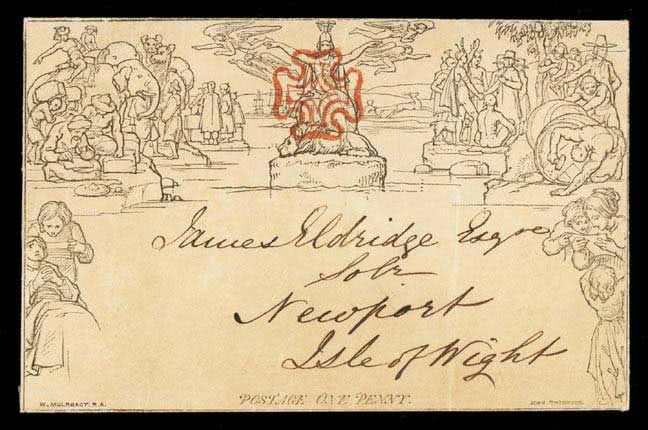 James Eldridge Esqre
Solr
Newport
Isle of Wight
POSTAGE ONE PENNY.
W. MULREADY. R.A.
JOHN THOMPSON.